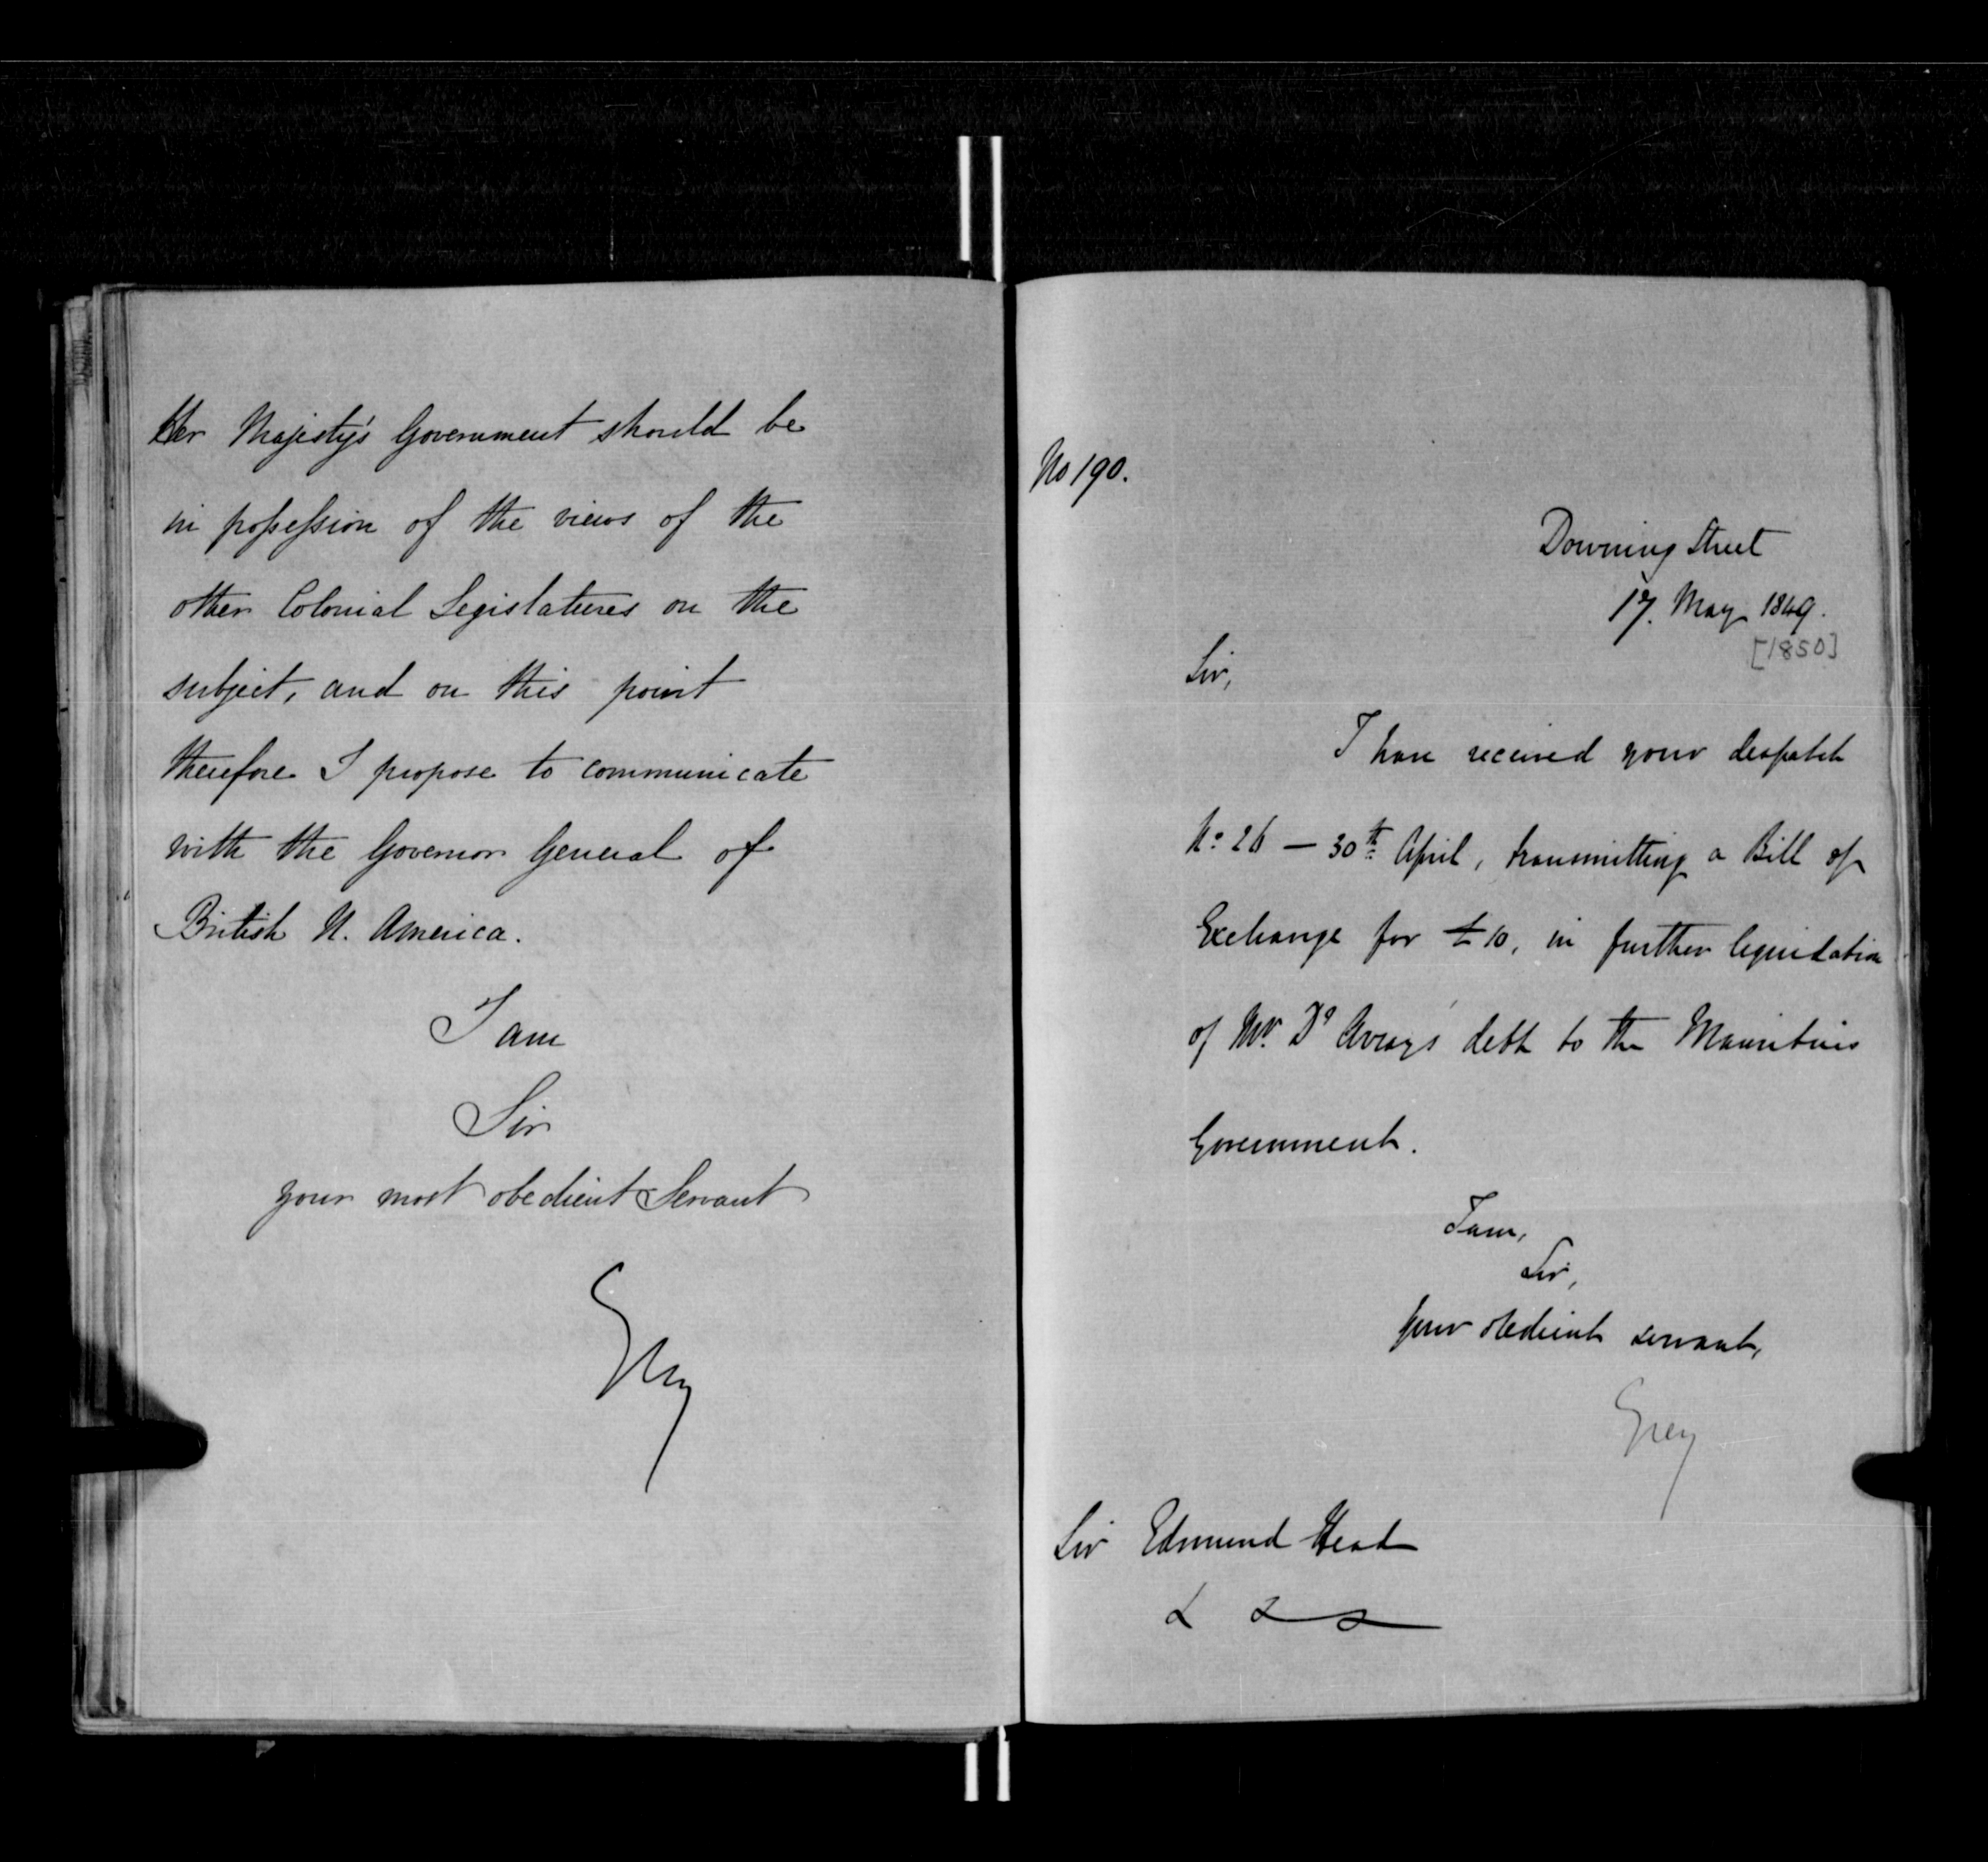 Her Majesty's Government should be
in possession of the views of the
other Colonial Legislatures on the
subject, and on this point
therefore I propose to communicate
with the Governor General of
British N. America.
I am
Sir
your most obedient Servant
Grey
No 190.
Downing Street
17. May 1849.
[1850]
Sir,
I have received your despatch
No. 26 — 30th April, transmitting a Bill of
Exchange for £10, in further liquidation
of Mr. D' debt to the Mauritius
Government.
I am,
Sir,
Your obedient servant,
Grey
Sir Edmund Head